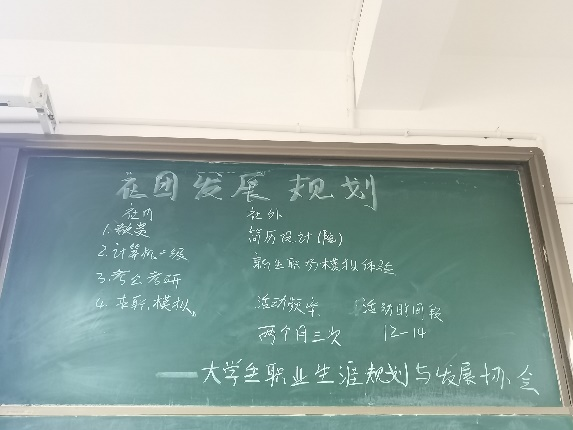 社团发展规划
社内 社外
1.教资 简历设计(陆)
2.计算机二级 新生职场模拟体验
3.考公考研
4.求职模拟。 活动频率 活动时间段
两个月三次 12-14
——大学生职业生涯规划与发展协会